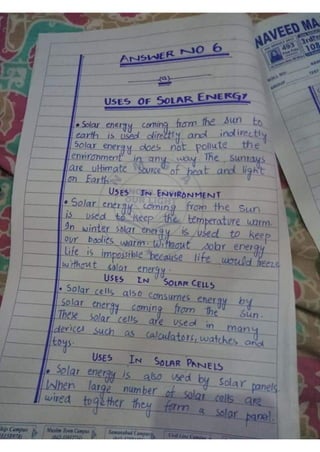 ANSWER NO 6
USES OF SOLAR ENERGY
• Solar energy coming from the sun to
earth is used directly and indirectly
Solar energy does not pollute the
environment in any way The sunrays
are ultimate source of heat and light
on Earth.
USES IN ENVIRONMENT
• Solar energy coming from the sun
is used to keep the temperature warm
In winter solar energy is used to keep
our bodies warm. Without solar energy
life is impossible because life would freeze
without solar energy.
USES IN SOLAR CELLS
• Solar cells also consumes energy by
solar energy coming from the sun.
These solar cells are used in many
derices such as calculators, watches and
toys.
USES IN SOLAR PANELS
• Solar energy is also used by solar panels
When large number of solar cells are
wired together they form a solar panel.
NAVEED MA
493
Muslim Town Campus
Samanabad Campus